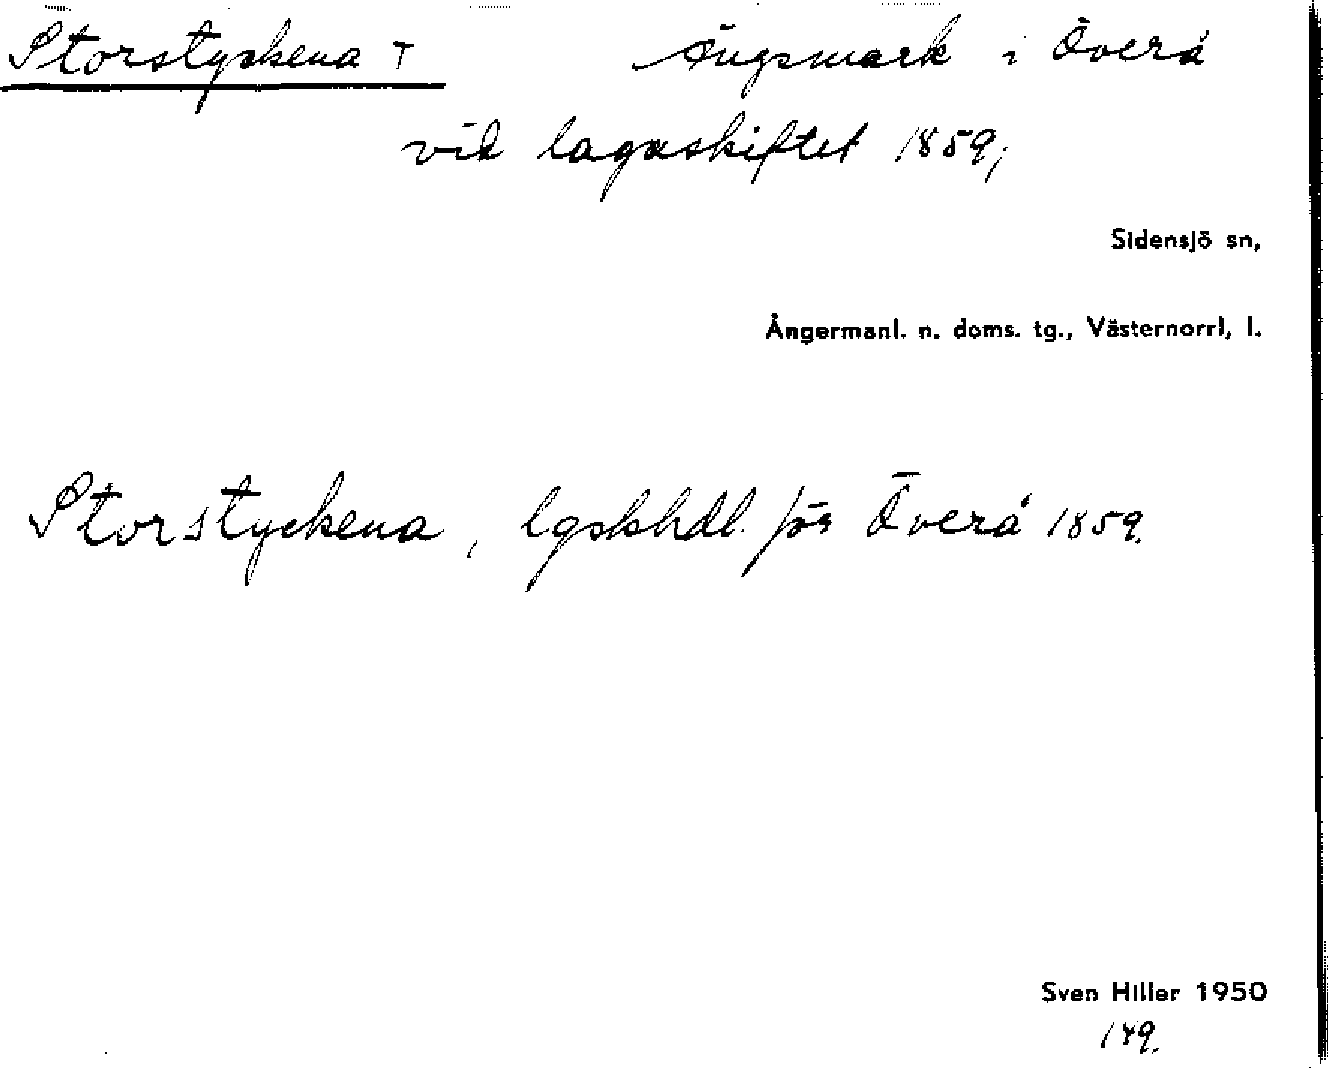 Storstyckena † Ängsmark i Överå
vid lagaskiftet 1859;
Sidensjö sn,
Ångermanl. n. doms. tg., Västernorrl, l.
Storstyckena, lgskhdl. för Överå 1859.
Sven Hiller 1950
149.